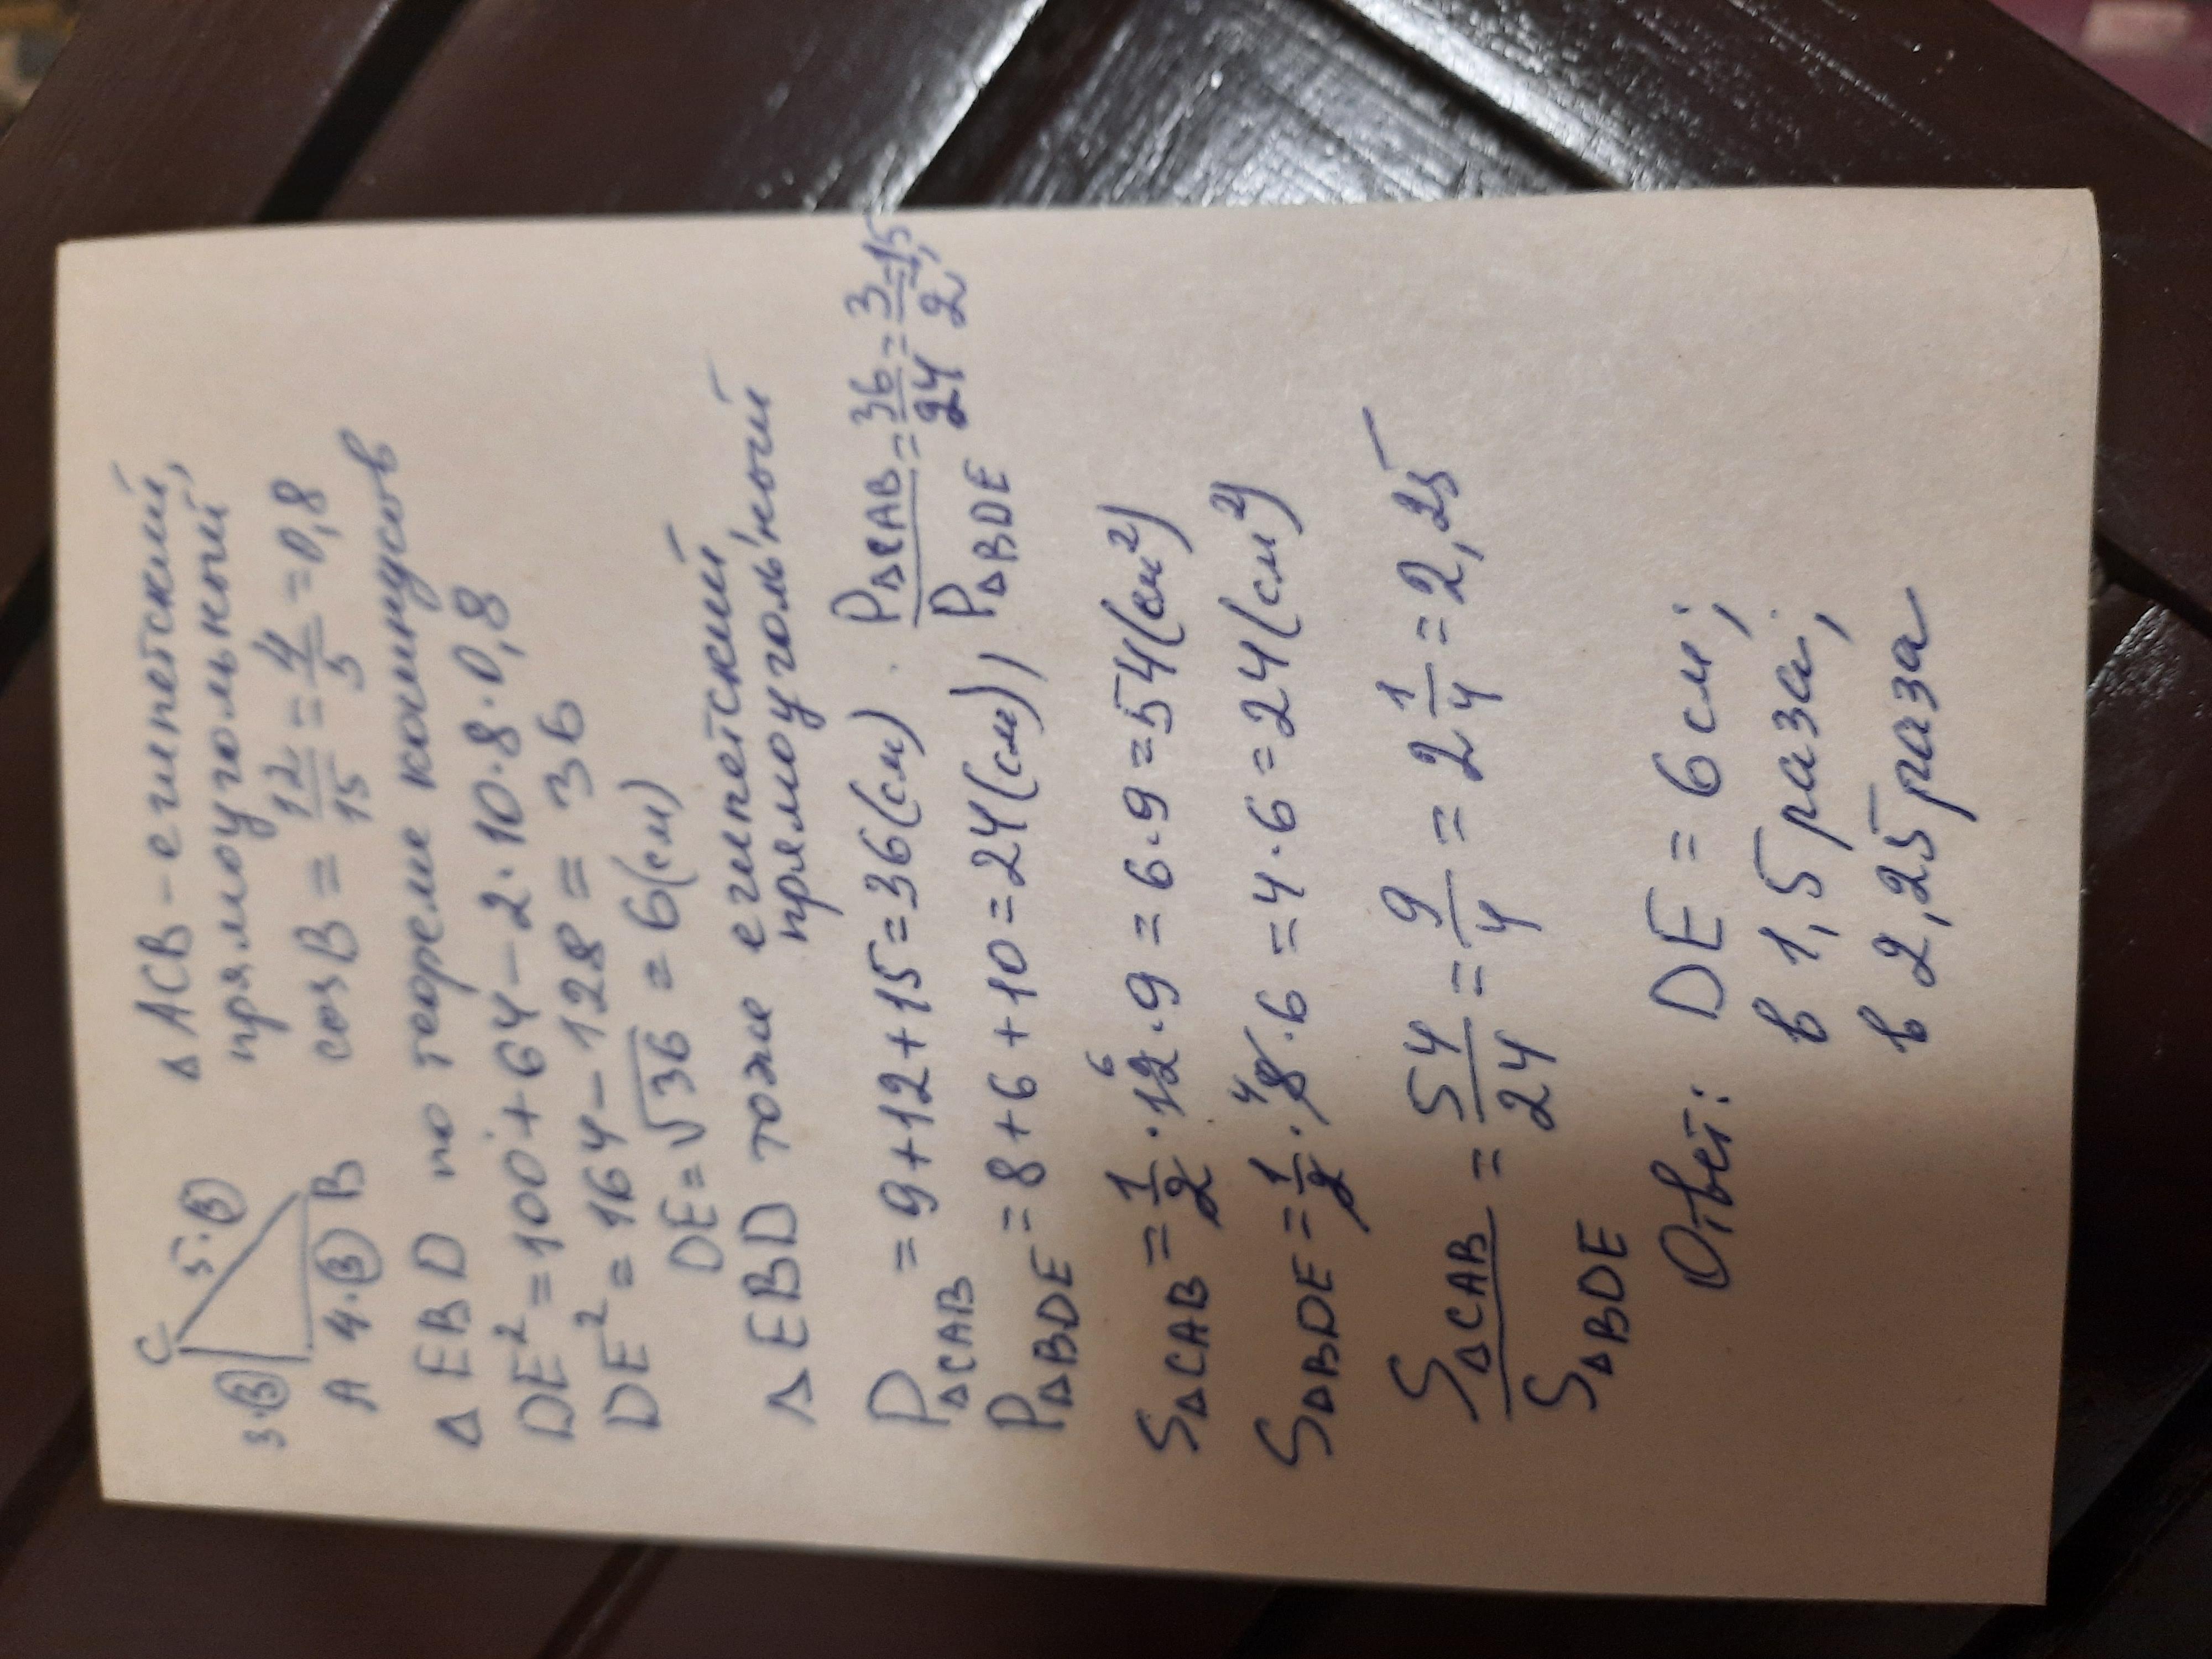 C
3·3 5·3
A 4·3 B
Δ ACB – египетский,
прямоугольный
cosB = 12/15 = 4/5 = 0,8
Δ EBD по теореме косинусов
DE² = 100 + 64 – 2·10·8·0,8
DE² = 164 – 128 = 36
DE = √36 = 6(см)
Δ EBD тоже египетский,
прямоугольный
PΔCAB = 9+12+15=36(см)
PΔBDE = 8+6+10=24(см), PΔCAB/PΔBDE = 36/24 = 3/2 = 1,5
SΔCAB = 1/2·12·9 = 6·9=54(см²)
SΔBDE = 1/2·8·6 = 4·6=24(см²)
SΔCAB/SΔBDE = 54/24 = 9/4 = 2 1/4 = 2,25
Ответ: DE = 6 см;
в 1,5 раза;
в 2,25 раза